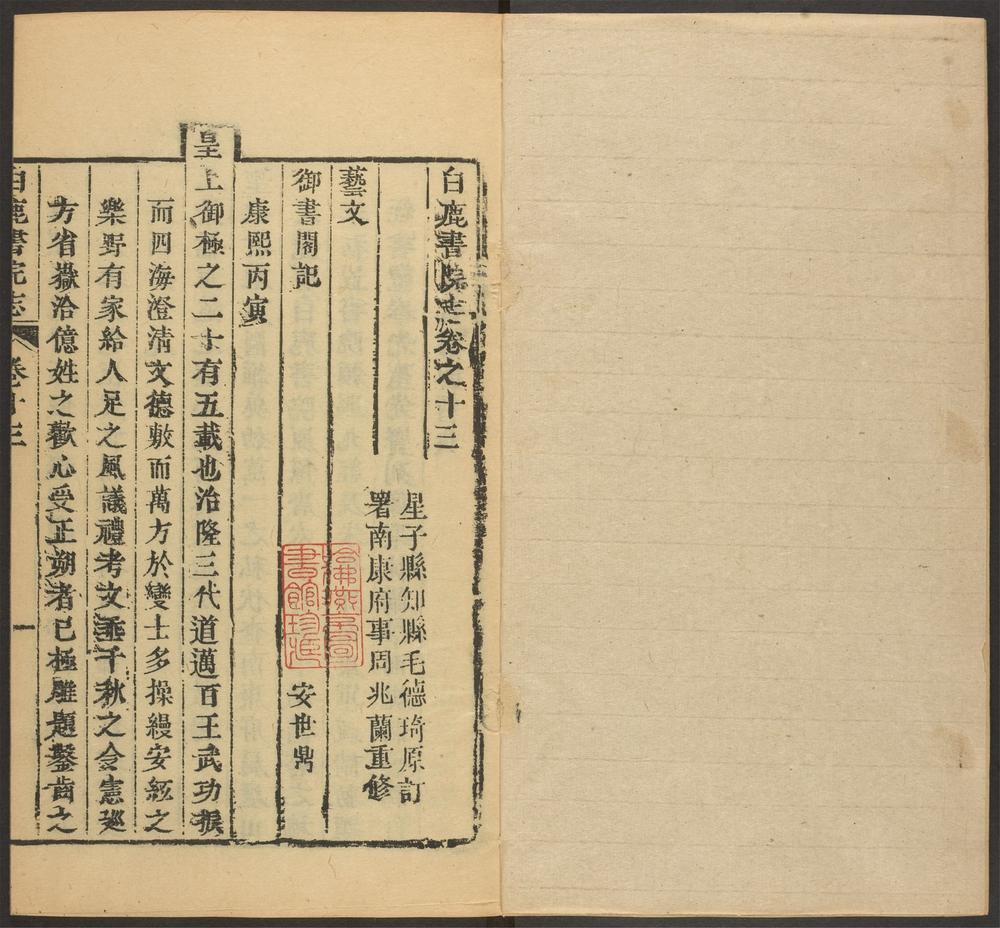 白鹿書院志卷之十三
星子縣知縣毛德琦原訂
署南康府事周兆蘭重修
藝文
御書閣記
安世鼎
康熙丙寅
皇上御極之二十有五載也治隆三代道邁百王武功揆
而四海澄清文德敷而萬方於變士多操縵安絃之
樂野有家給人足之風議禮考文垂千秋之令憲廵
方省嶽洽億姓之歡心受正朔者已極雕題鑿齒之
白鹿書院志
卷十三
一
哈佛燕京
書館珍